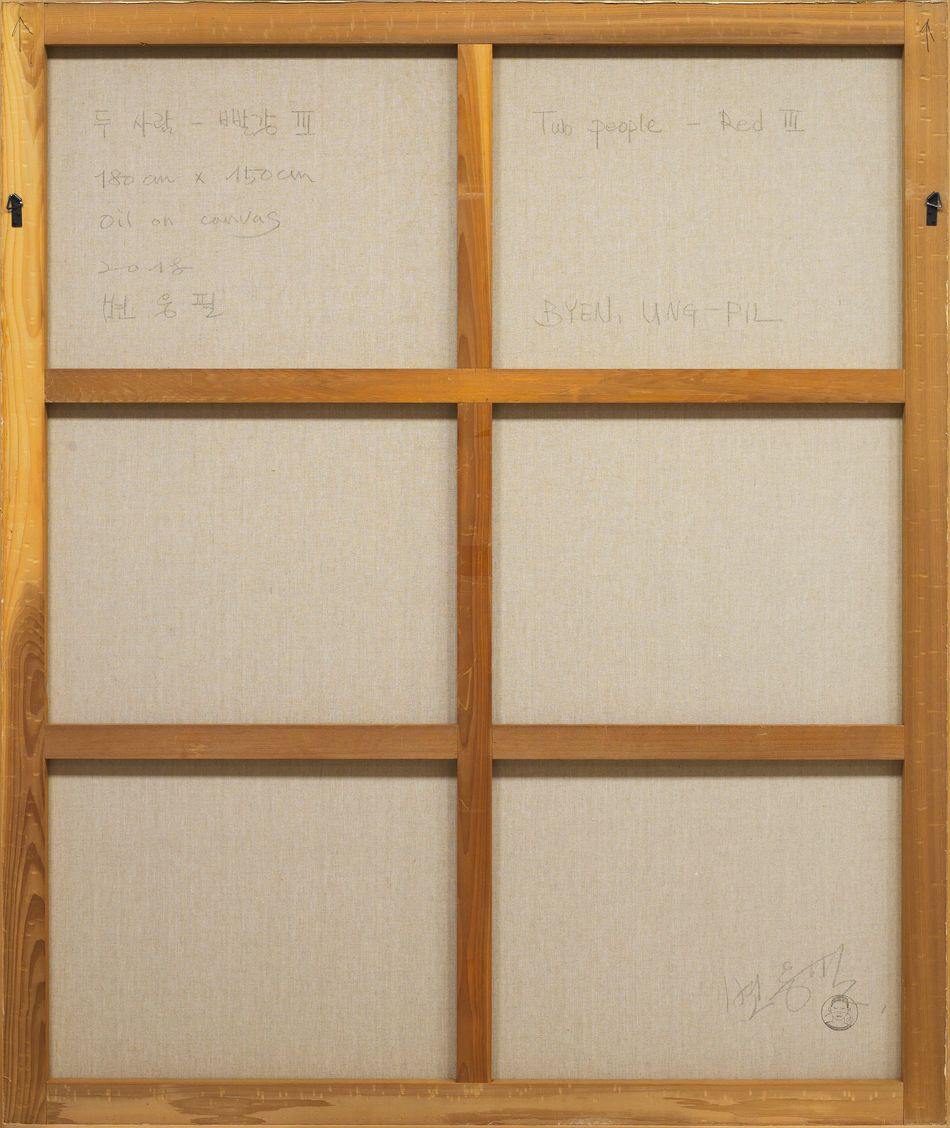 두 사람 - 빨강 III
180cm x 150cm
oil on canvas
2018
변웅필
Two people - Red III
BYEN, UNG-PIL
변웅필